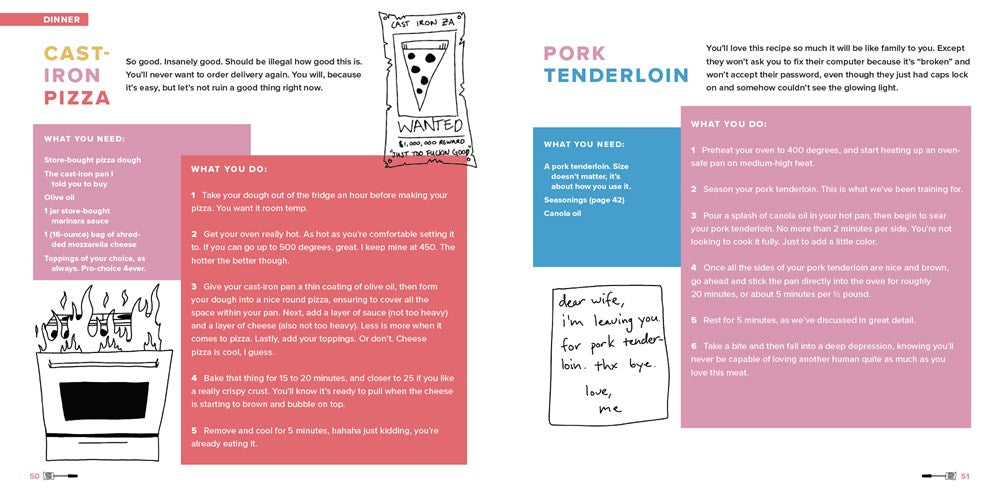 DINNER
CAST-
IRON
PIZZA
So good. Insanely good. Should be illegal how good this is.
You'll never want to order delivery again. You will, because
it's easy, but let's not ruin a good thing right now.
CAST IRON ZA
WANTED
$1,000,000 REWARD
"JUST TOO FUCKIN GOOD"
WHAT YOU NEED:
Store-bought pizza dough
The cast-iron pan I
told you to buy
Olive oil
1 jar store-bought
marinara sauce
1 (16-ounce) bag of shred-
ded mozzarella cheese
Toppings of your choice, as
always. Pro-choice 4ever.
WHAT YOU DO:
1 Take your dough out of the fridge an hour before making your
pizza. You want it room temp.
2 Get your oven really hot. As hot as you're comfortable setting it
to. If you can go up to 500 degrees, great. I keep mine at 450. The
hotter the better though.
3 Give your cast-iron pan a thin coating of olive oil, then form
your dough into a nice round pizza, ensuring to cover all the
space within your pan. Next, add a layer of sauce (not too heavy)
and a layer of cheese (also not too heavy). Less is more when it
comes to pizza. Lastly, add your toppings. Or don't. Cheese
pizza is cool, I guess.
4 Bake that thing for 15 to 20 minutes, and closer to 25 if you like
a really crispy crust. You'll know it's ready to pull when the cheese
is starting to brown and bubble on top.
5 Remove and cool for 5 minutes, hahaha just kidding, you're
already eating it.
50
PORK
TENDERLOIN
You'll love this recipe so much it will be like family to you. Except
they won't ask you to fix their computer because it's "broken" and
won't accept their password, even though they just had caps lock
on and somehow couldn't see the glowing light.
WHAT YOU NEED:
A pork tenderloin. Size
doesn't matter, it's
about how you use it.
Seasonings (page 42)
Canola oil
dear wife,
i'm leaving you
for pork tender-
loin. thx bye.
love,
me
WHAT YOU DO:
1 Preheat your oven to 400 degrees, and start heating up an oven-
safe pan on medium-high heat.
2 Season your pork tenderloin. This is what we've been training for.
3 Pour a splash of canola oil in your hot pan, then begin to sear
your pork tenderloin. No more than 2 minutes per side. You're not
looking to cook it fully. Just to add a little color.
4 Once all the sides of your pork tenderloin are nice and brown,
go ahead and stick the pan directly into the oven for roughly
20 minutes, or about 5 minutes per ½ pound.
5 Rest for 5 minutes, as we've discussed in great detail.
6 Take a bite and then fall into a deep depression, knowing you'll
never be capable of loving another human quite as much as you
love this meat.
51